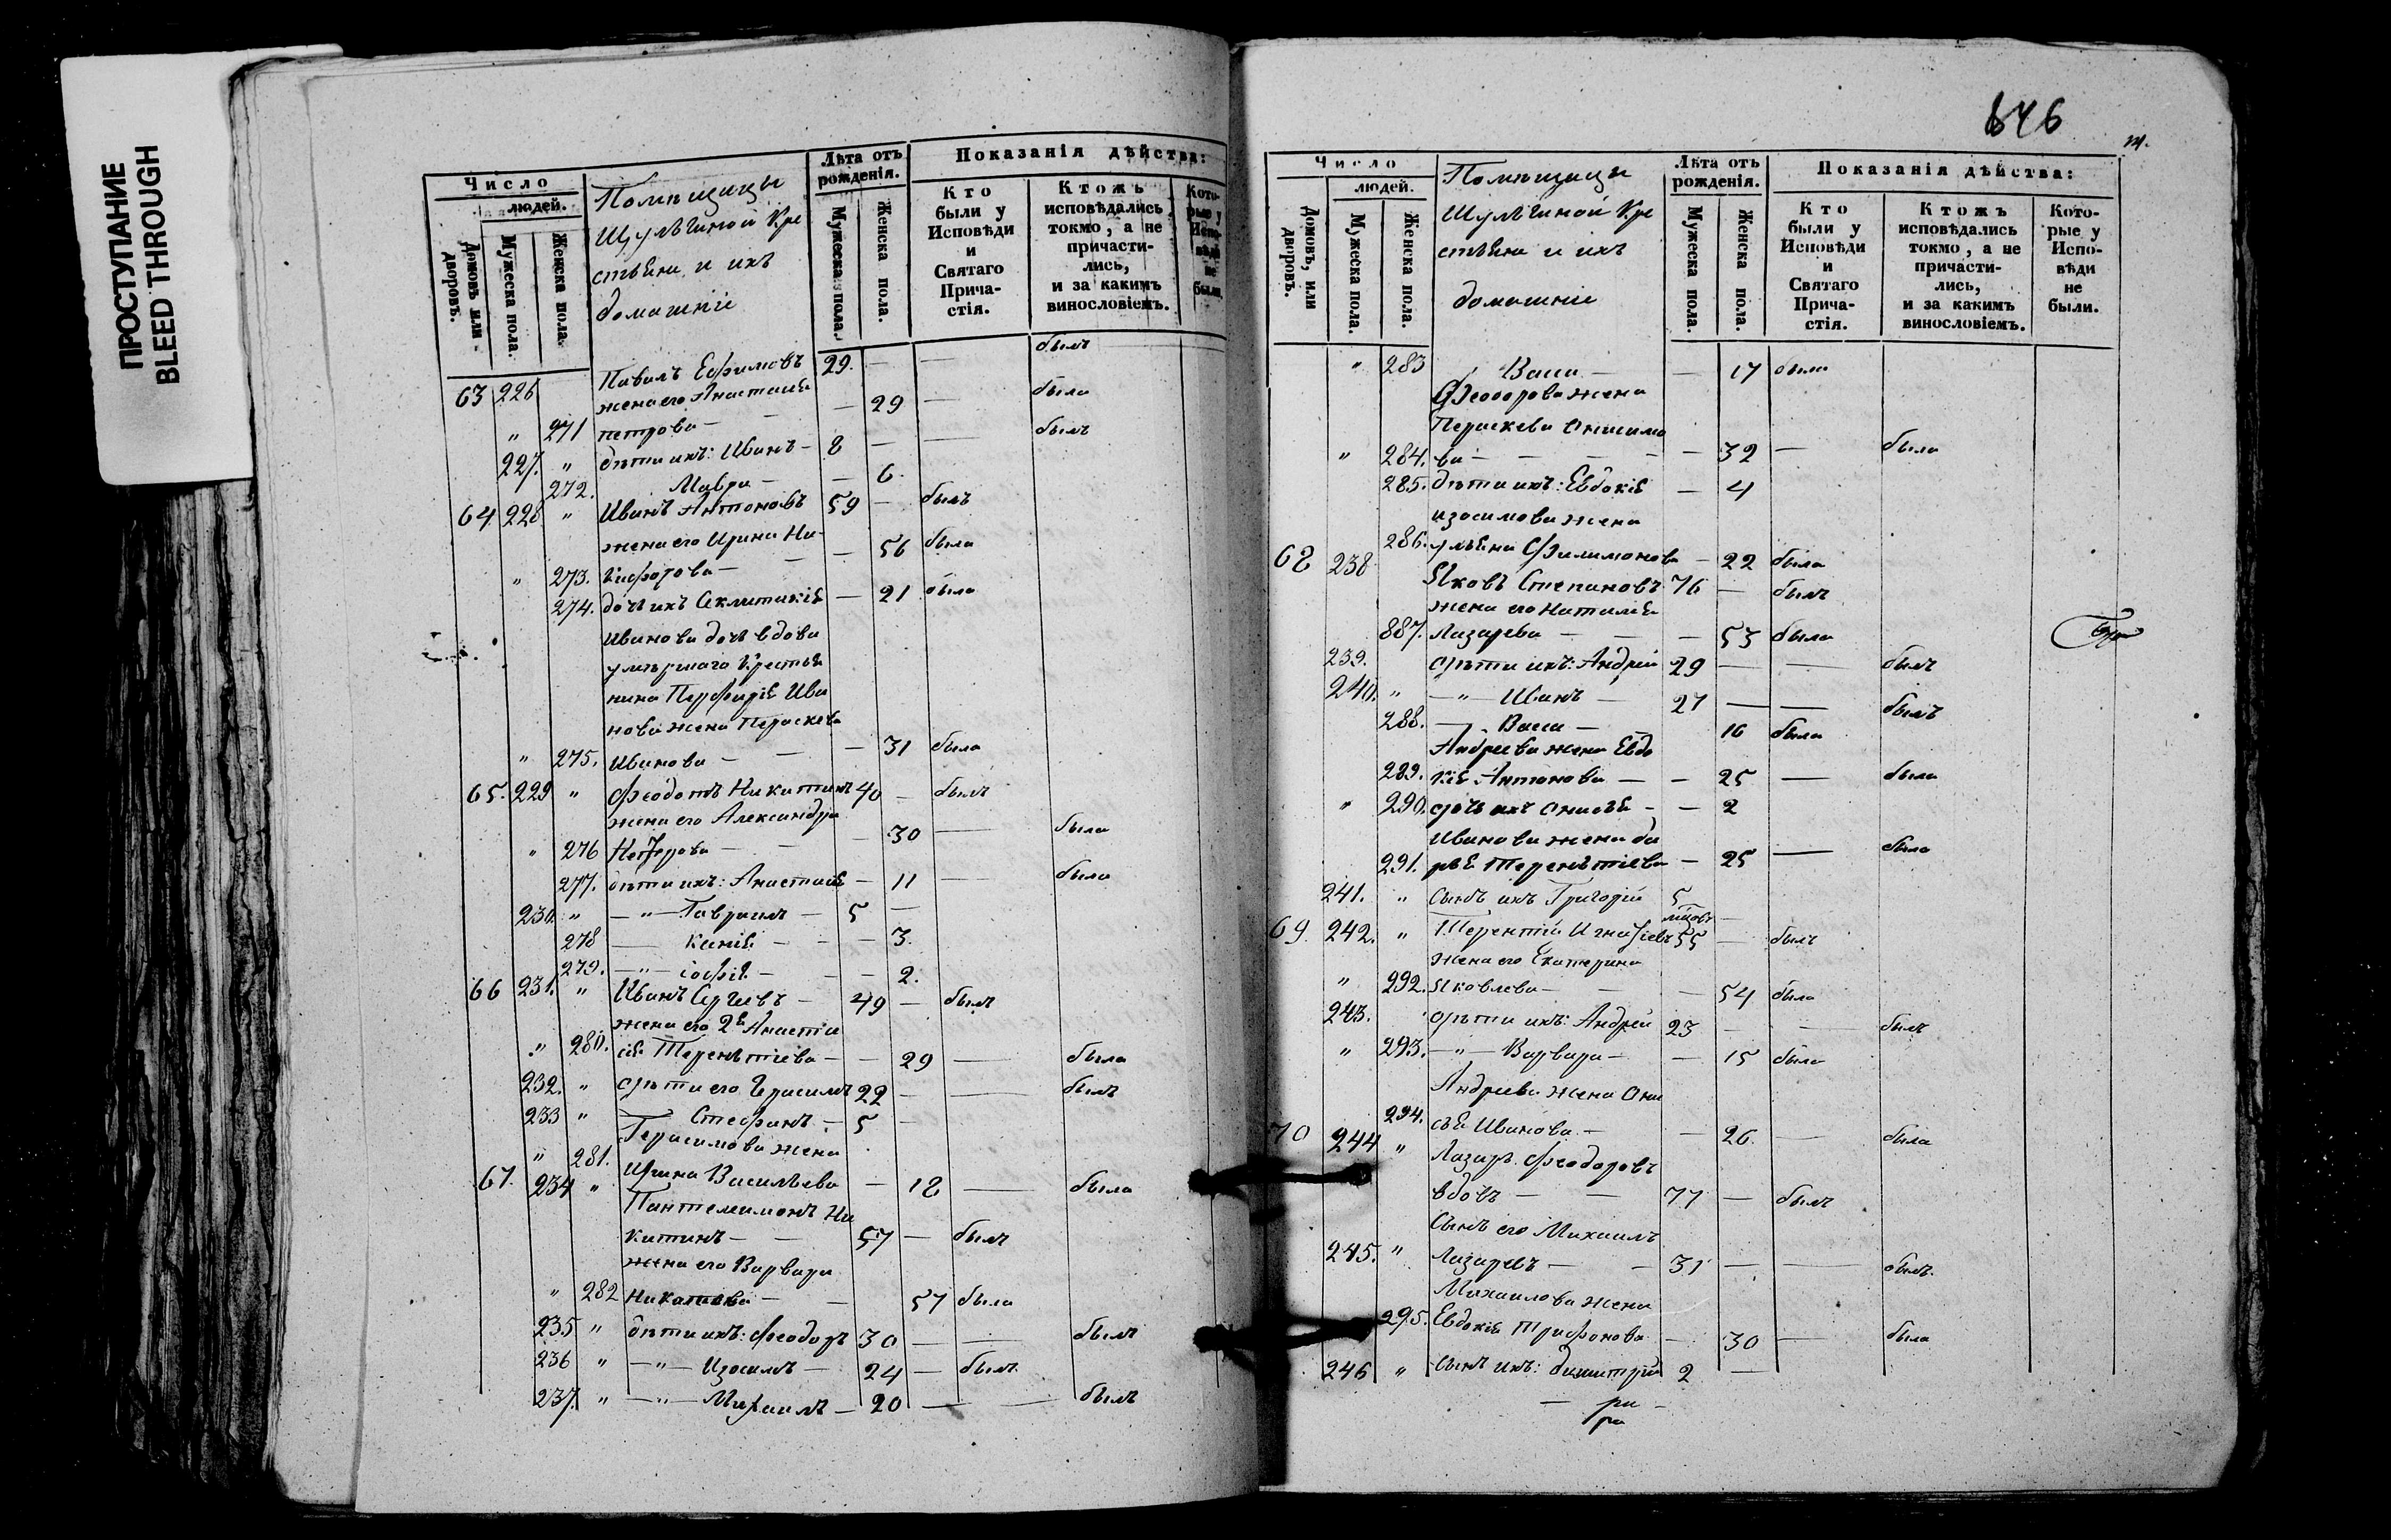 ПРОСТУПАНИЕ
BLEED THROUGH
Число
людей.
Домовъ или дворовъ.
Мужеска пола.
Женска пола.
Помѣщицы
Шульгиной Кре
стьяне и ихъ
домашніе
Лѣта отъ рожденія.
Мужеска пола.
Женска пола.
Показанія дѣйства:
Кто были у Исповѣди и Святаго Прича-стія.
Ктожъ исповѣдались токмо, а не причасти-лись, и за какимъ винословіемъ.
Кото-рые у Испо-вѣди не были.
63 226 Павелъ Ефимовъ 29. — — былъ
жена его Анастасія
" 271 петрова — — 29 — была
227. " дѣти ихъ: Иванъ — 8 — — былъ
272. Мавра — — 6.
64 228 " Иванъ Антоновъ 59 — былъ
жена его Ирина Ни-
" 273. кифорова — — 56 была
274. дочь ихъ Секлитикія — 21 была
Иванова дочь вдова
умершаго Крестья
нина Перфирія Ива
нова жена Параскева
" 275. Иванова — — 31 была
65. 229 " Феодотъ Никитинъ 40 — былъ
жена его Александра
" 276 — — 30 — была
277. дѣти ихъ: Анастасія — 11 — была
230. " — " — Гавріилъ — 5 —
278 — Ксенія — — 3.
279. — " — софія — — 2.
66 231. " Иванъ Сергеевъ — 49 — былъ
жена его 2я Анаста
" 280. сія Терентіева — — 29 — была
232. " дѣти его Герасимъ 22 — — былъ
233 " — Стефанъ — 5 —
Герасимова жена
" 281. Ирина Васильева — 18 — была
67. 234 " Пантелимонъ Ни
китинъ — — 57 — былъ
жена его Варвара
" 282 — 57 была
235 " дѣти ихъ: Феодоръ 30 — — былъ
236 " — " — Изосимъ — 24 — былъ
237. " — " — Михаилъ — 20 — — былъ
646
Число
людей.
Домовъ, или дворовъ.
Мужеска пола.
Женска пола.
Помѣщицы
Шульгиной Кре
стьяне и ихъ
домашніе
Лѣта отъ рожденія.
Мужеска пола.
Женска пола.
Показанія дѣйства:
Кто были у Исповѣди и Святаго Прича-стія.
Ктожъ исповѣдались токмо, а не причасти-лись, и за какимъ винословіемъ.
Кото-рые у Испо-вѣди не были.
" 283 Васса — — 17 была
Феодорова жена
Параскева Онисимо
" 284. ва — — — 32 — была
285. дѣти ихъ: Евдокія — 4
изосимова жена
286. ульяна Филимонова — 22 была
68 238 Яковъ Степановъ 76 — былъ
жена его Наталія
887. Лазарева — — — 53 была
239. дѣти ихъ: Андрей 29 — — былъ
240. " — " — Иванъ — 27 — — былъ
288. — Васса — 16 была
Андреева жена Евдо
289. кія Антонова — — 25 — была
" 290. дочь ихъ Онисья — — 2
Иванова жена да
291. рья Терентіева — 25 — была
241. " Сынъ ихъ Григорій 5
69. 242. " Терентій Игнатіевъ 55 — былъ
жена его Екатерина
" 292. Яковлева — — — 54 была
243. дѣти ихъ: Андрей 23 — — былъ
" 293. — " — Варвара — — 15 была
Андреева жена Они
294. сья Иванова — — 26. — была
70 244 " Лазарь Феодоровъ
вдовъ — — 77 — былъ
Сынъ его Михаилъ
245. " Лазаревъ — — 31 — — былъ.
Михаилова жена
295. Евдокія Трифонова — 30 — была
246 " сынъ ихъ: Димитрій 2 —